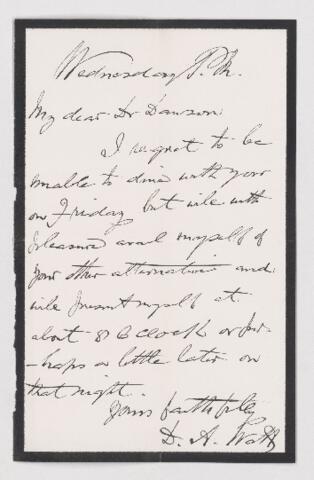 Wednesday P.M.
My dear Dr Dawson
I regret to be
unable to dine with you
on Friday but will with
pleasure avail myself of
your other alternative and
will present myself at
about 8 o'clock or per-
-haps a little later on
that night.
Yours faithfully
D. A. Watt